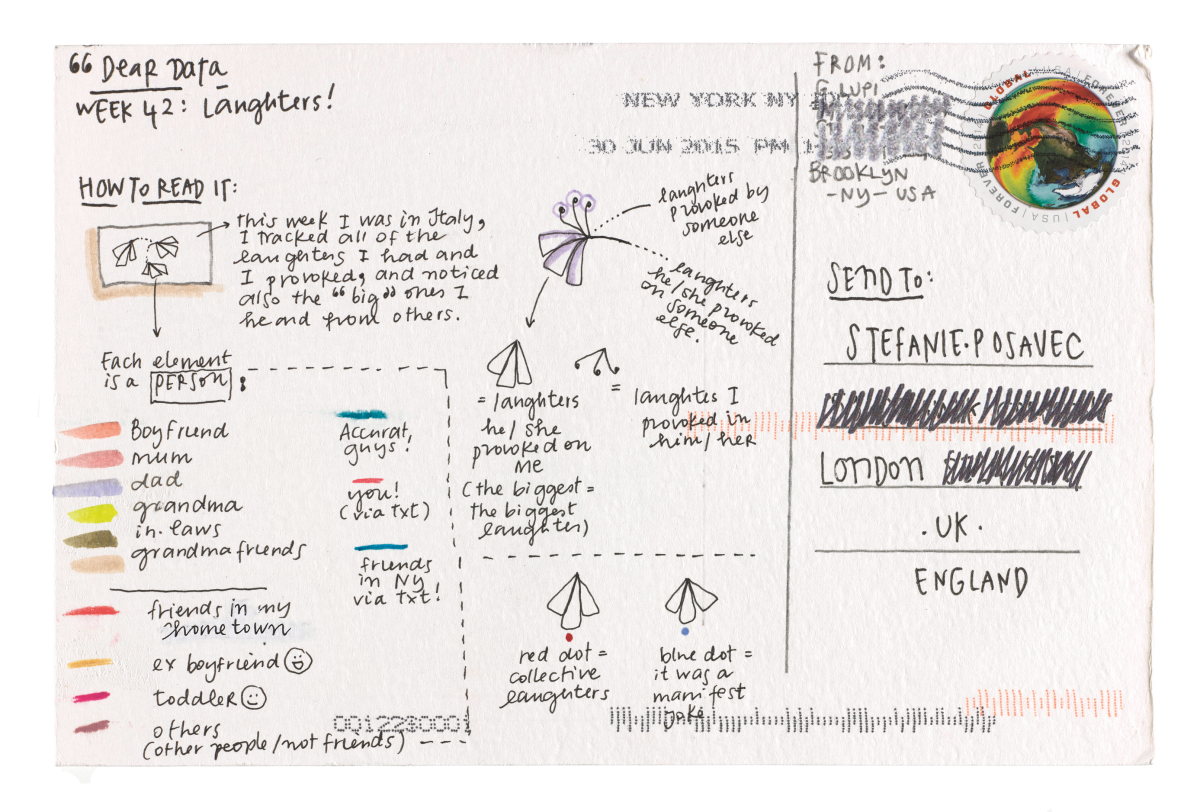 “ Dear Data
WEEK 42: Laughters!
HOW TO READ IT:
this week I was in Italy,
I tracked all of the
laughters I had and
I provoked, and noticed
also the “big” ones I
heard from others.
Each element
is a PERSON :
Boyfriend
mum
dad
grandma
in.laws
grandmafriends
friends in my
hometown
ex boyfriend
toddler
others
(other people/not friends)
Accurat
guys!
you!
(via txt)
friends
in NY
via txt!
laughters
provoked by
someone
else
laughters
he/she provoked
on someone
else.
= laughters
he/she
provoked on
me
(the biggest =
the biggest
laughter)
= laughtes I
provoked in
him/her
red dot =
collective
laughters
blue dot =
it was a
manifest
joke
NEW YORK NY
30 JUN 2015 PM
FROM:
G. LUPI
BROOKLYN
-NY- USA
GLOBAL | USA | FOREVER
GLOBAL | USA | FOREVER
SEND TO:
STEFANIE.POSAVEC
LONDON
.UK.
ENGLAND